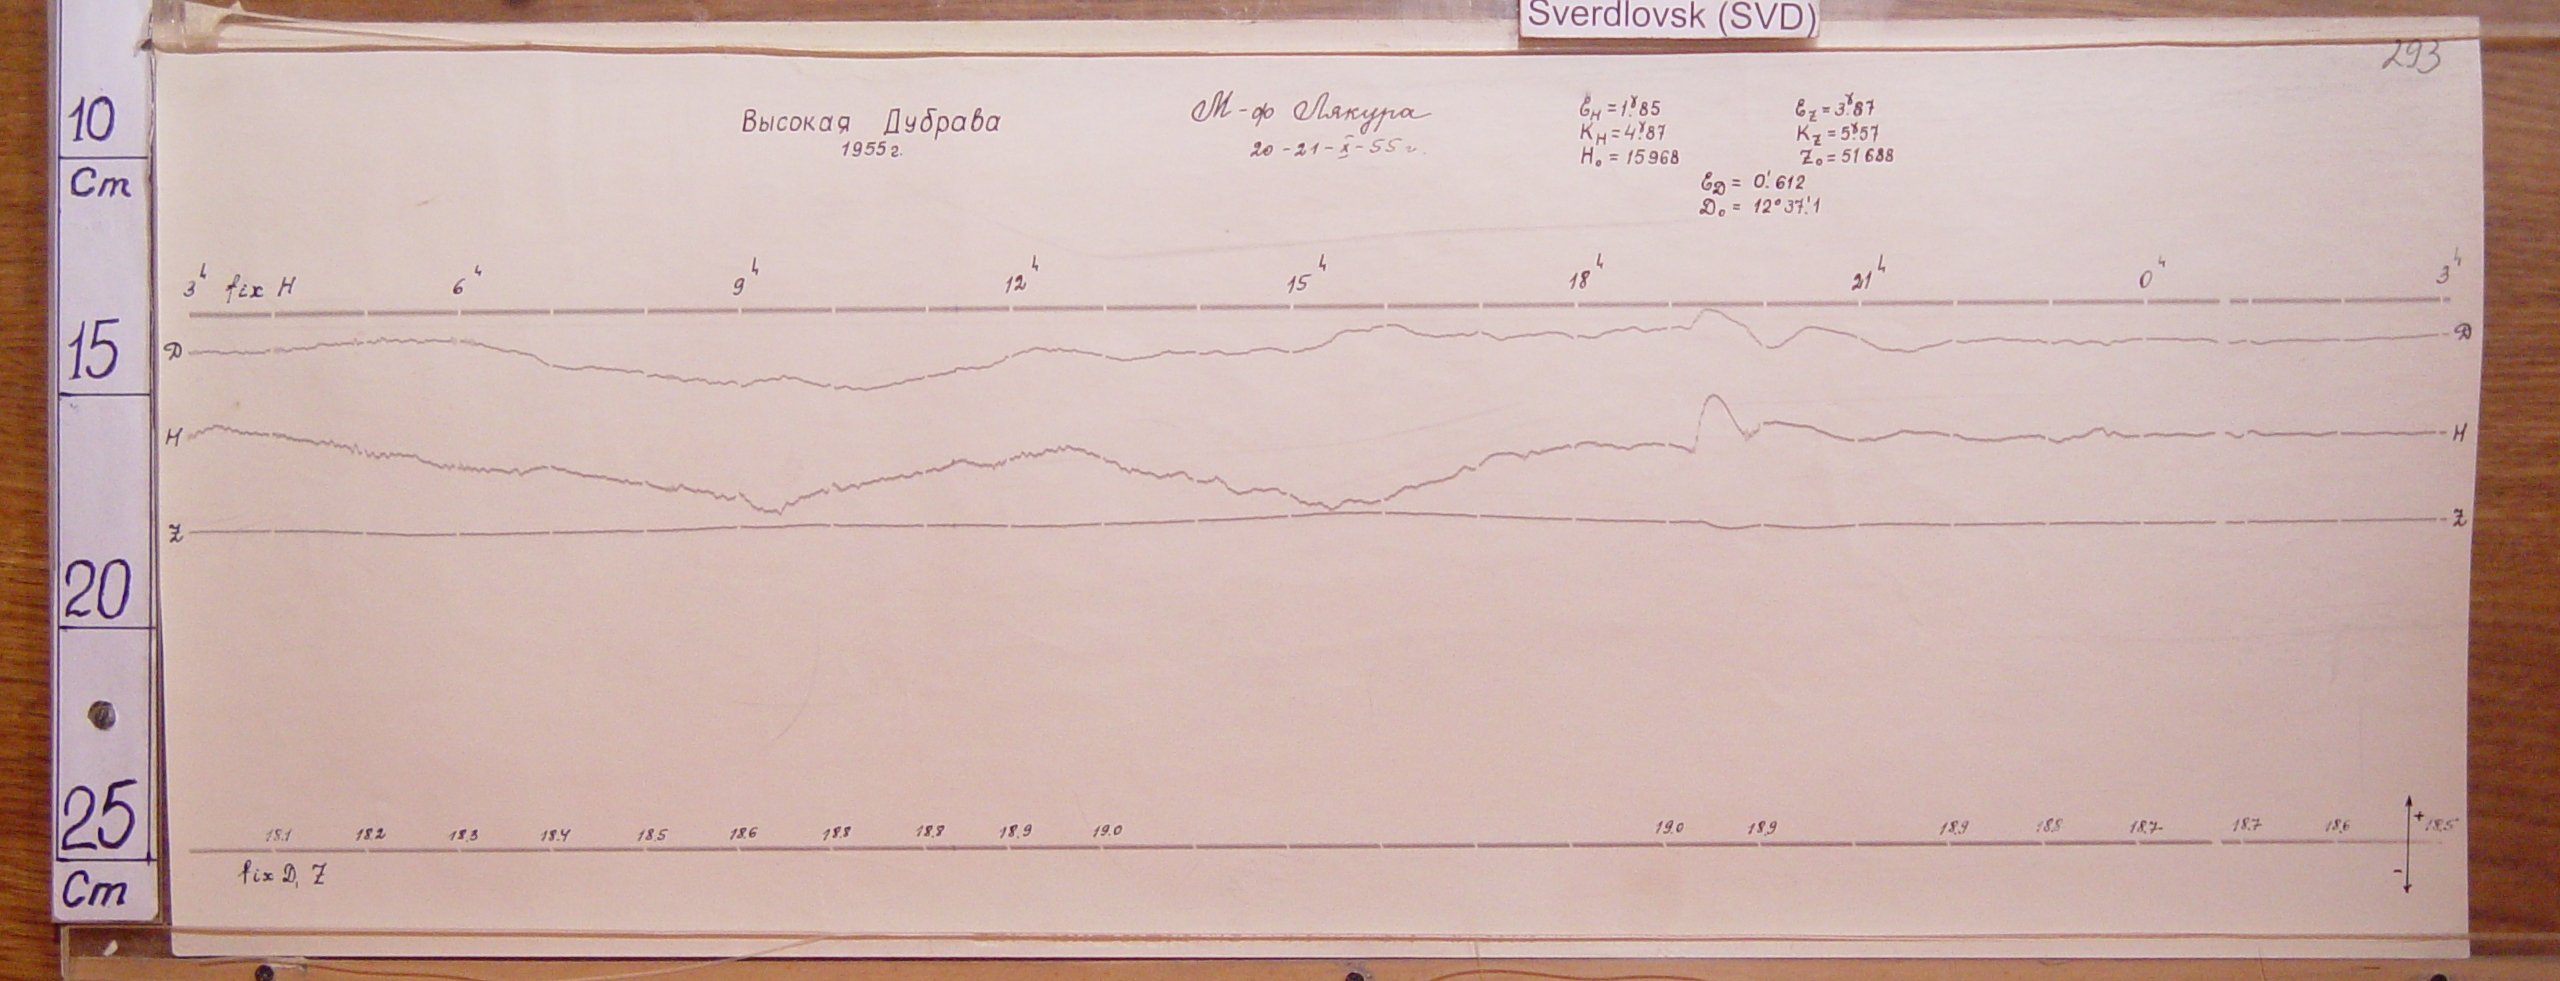 Sverdlovsk (SVD)
293
10
Cm
15
20
25
Cm
Высокая Дубрава
1955 г.
М-ф Лякура
20-21-X-55 г.
ε_H = 1.ˠ85
K_H = 4.ˠ87
H₀ = 15968
ε_Z = 3.ˠ87
K_Z = 5.ˠ57
Z₀ = 51688
ε_D = 0.'612
D₀ = 12°37.'1
3ʰ fix H 6ʰ 9ʰ 12ʰ 15ʰ 18ʰ 21ʰ 0ʰ 3ʰ
D D
H H
Z Z
18.1 18.2 18.3 18.4 18.5 18.6 18.8 18.8 18.9 19.0 19.0 18.9 18.9 18.8 18.7 18.7 18.6 + 18.5
fix D, Z -